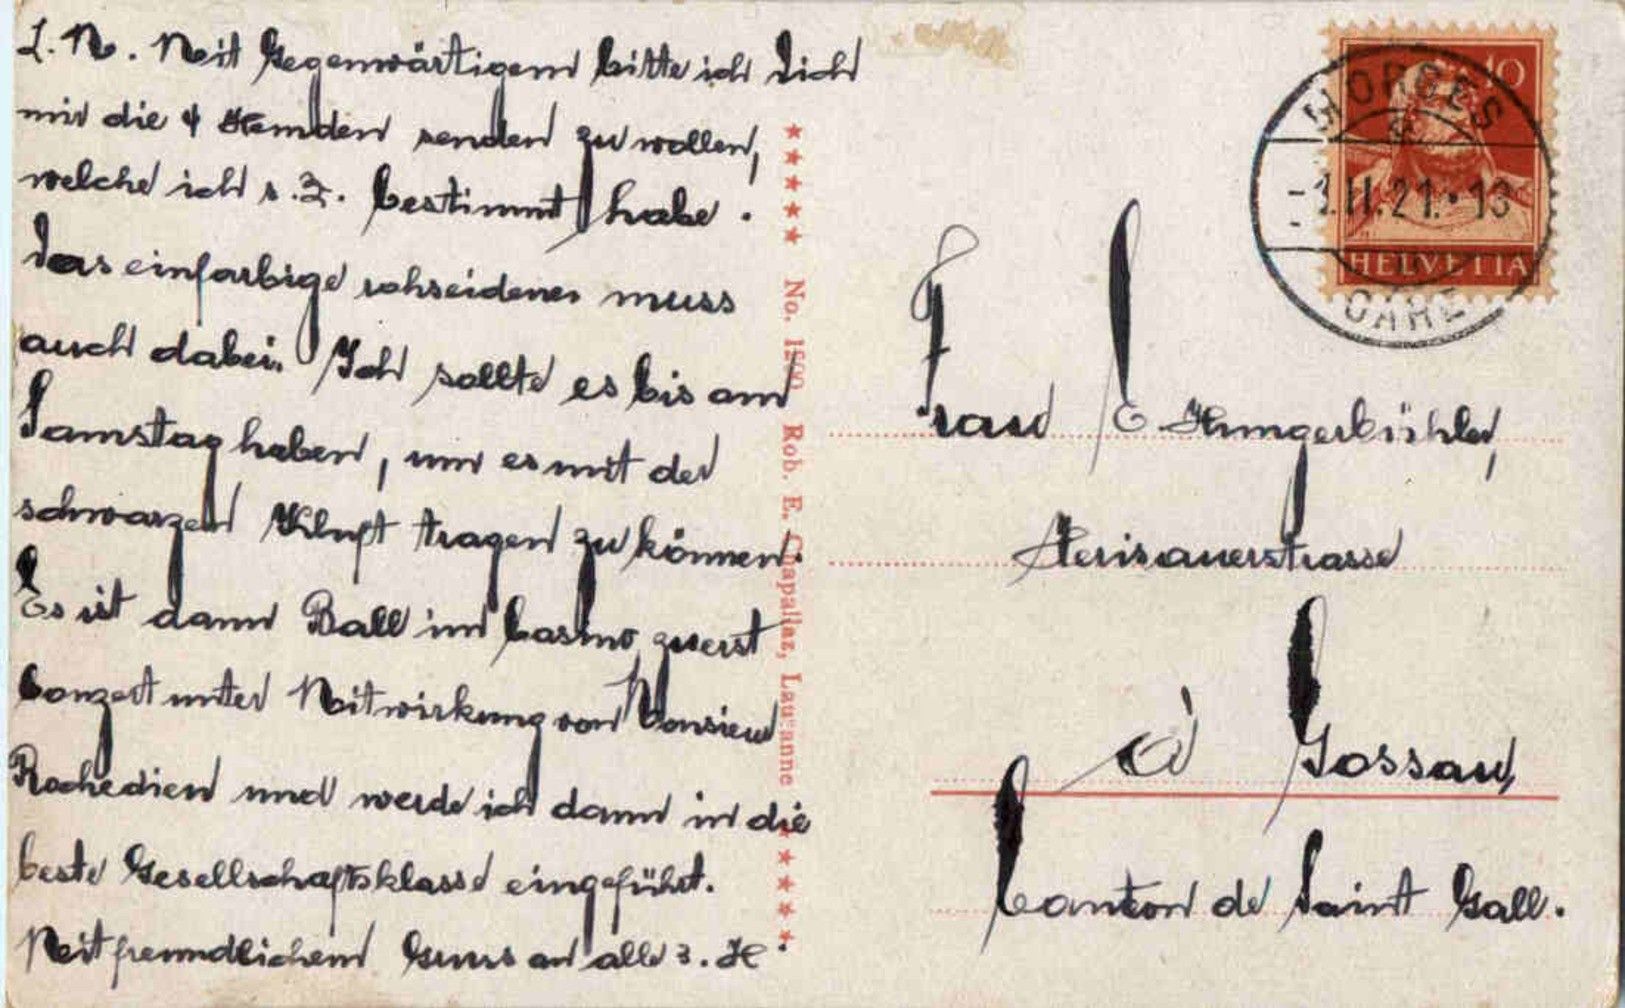 L. M. Mit Gegenwärtigem bitte ich Dich
mir die 4 Hemden senden zu wollen,
welche ich s. Z. bestimmt habe.
Das einfarbige rohseidene muss
auch dabei. Ich sollte es bis am
Samstag haben, um es mit der
schwarzen Kluft tragen zu können.
Es ist dann Ball im Casino, zuerst
Conzert unter Mitwirkung von Monsieur
Rochedieu und werde ich dann in die
beste Gesellschaftsklasse eingeführt.
Mit freundlichem Gruss an alle 3. H.
No. 1200 Rob. E. Chapallaz, Lausanne
10
HELVETIA
MORGES
-1.II.21.-13
GARE
Frau E Hungerbühler,
Herisauerstrasse
à Gossau,
Canton de Saint Gall.